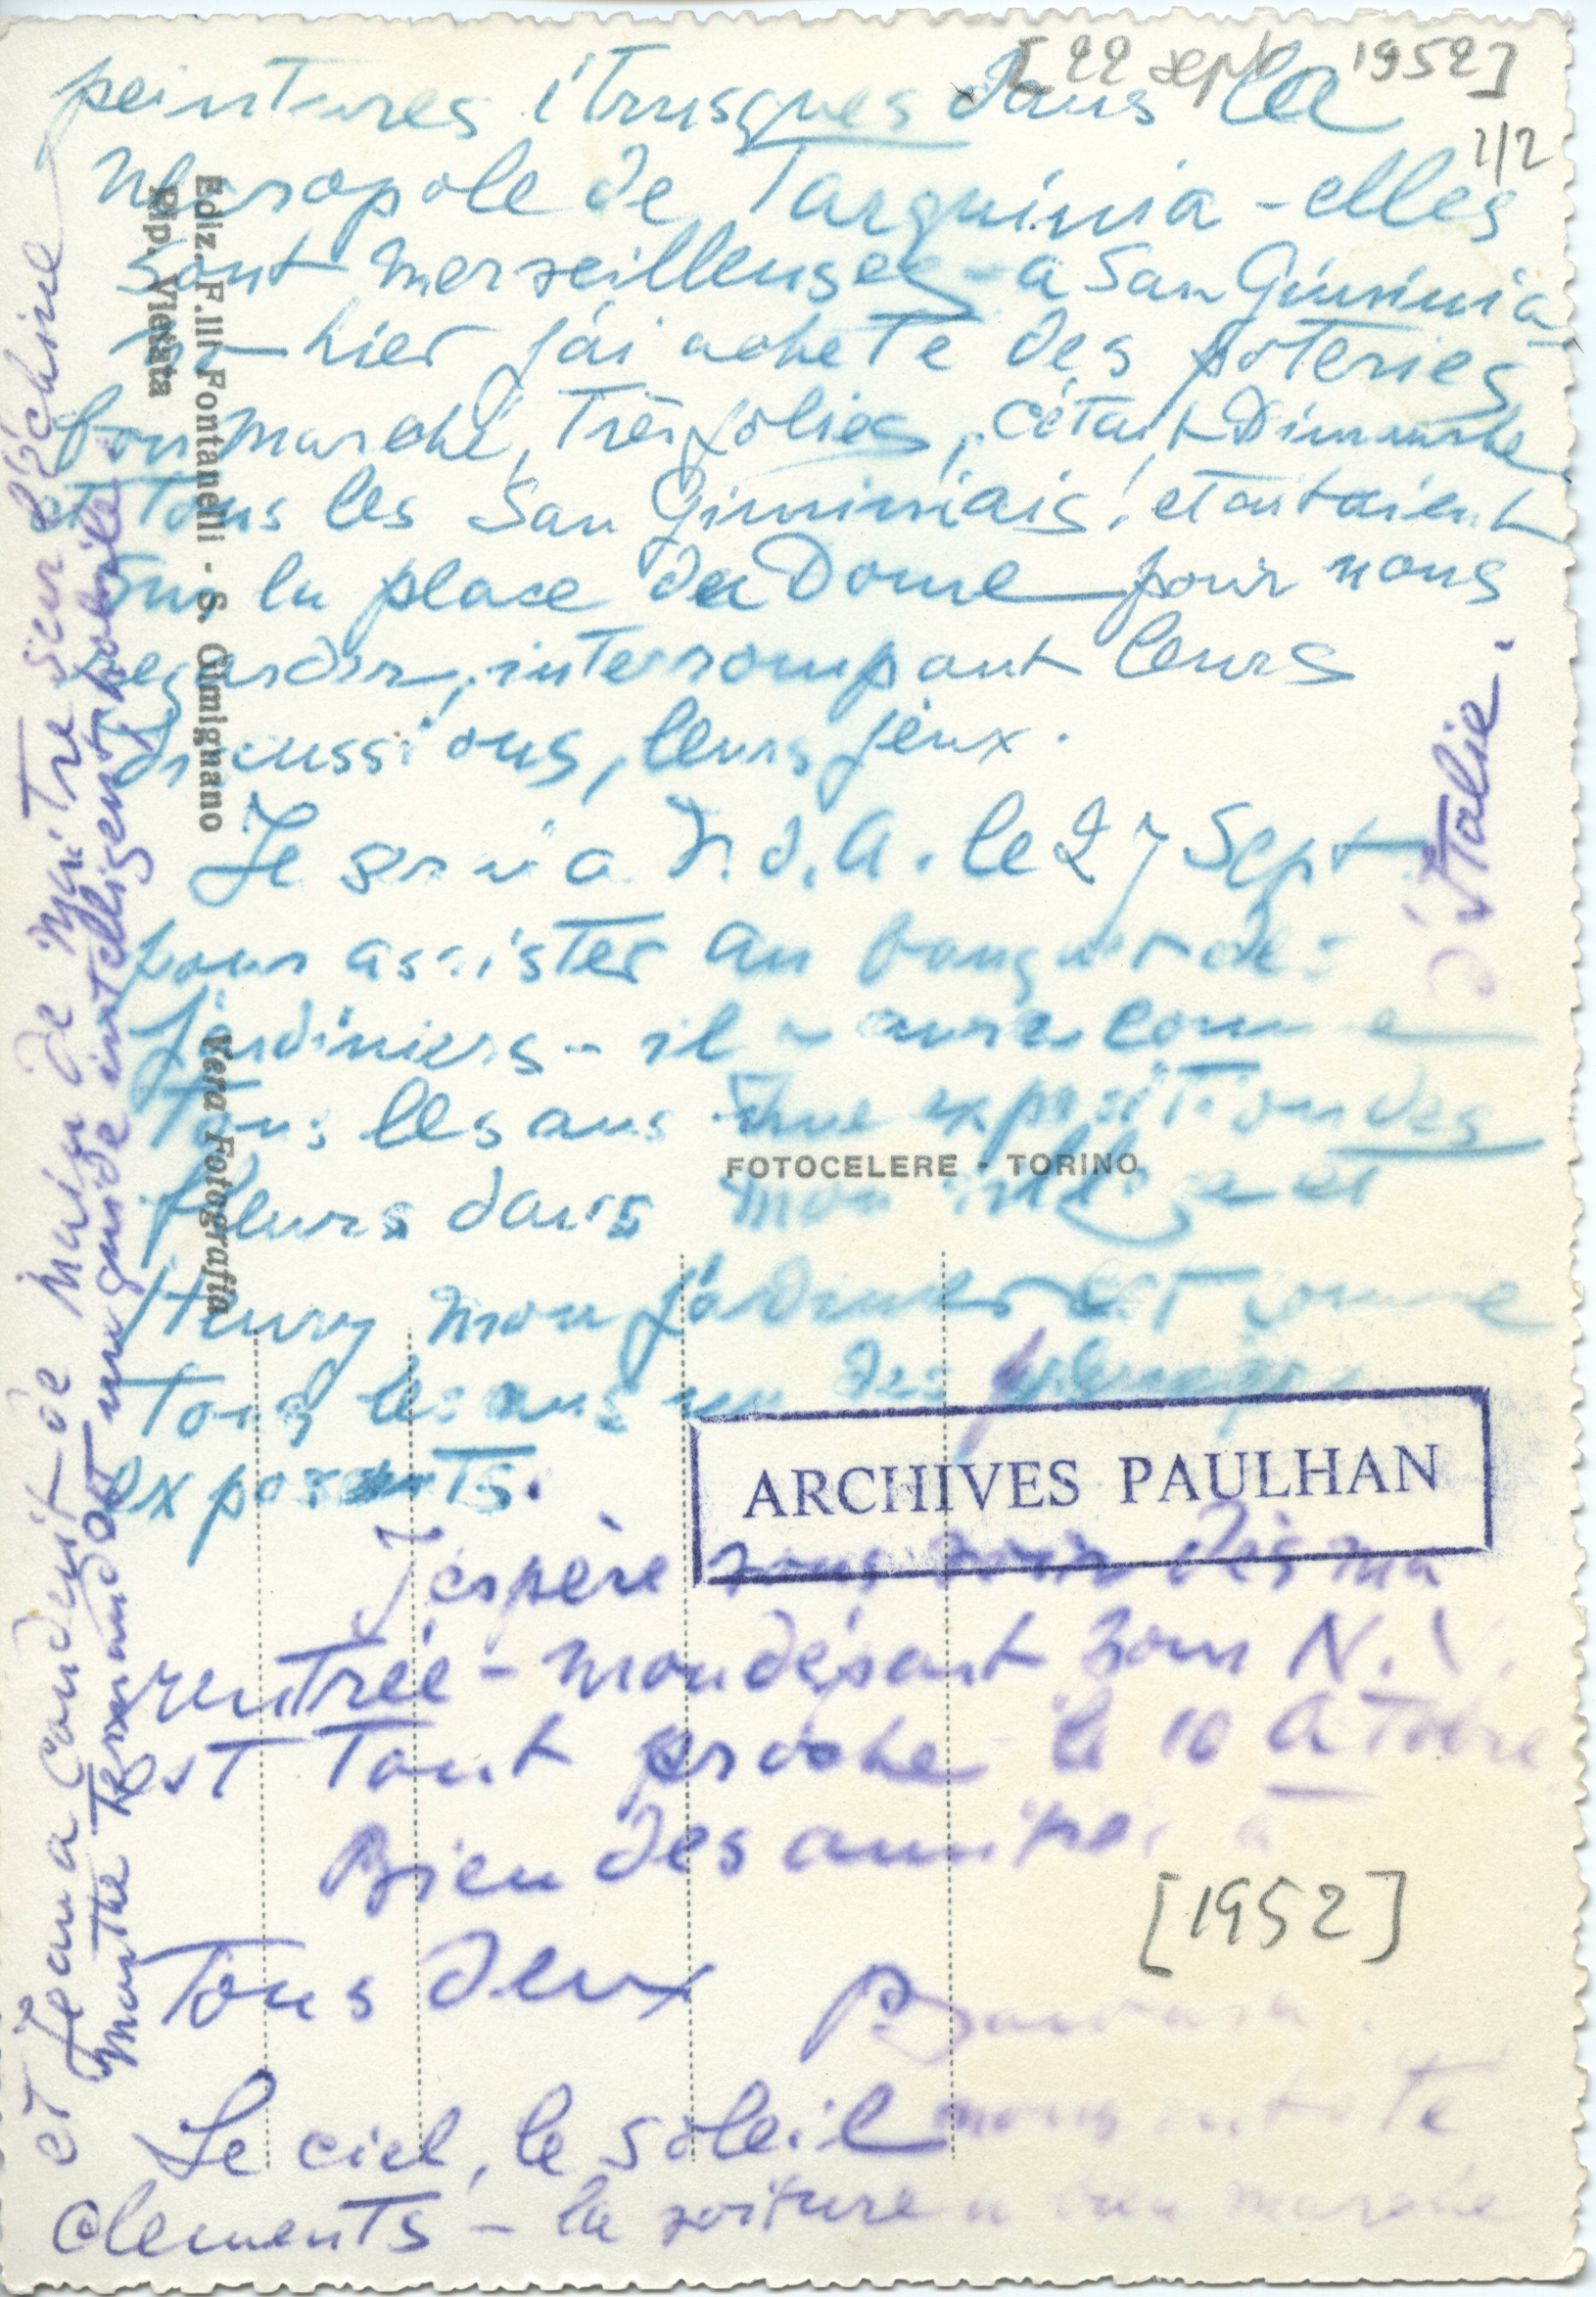 [22 sept 1952]
2/2
peintures étrusques dans la
Nécropole de Tarquinia - elles
sont merveilleuses - a San Giminia
no - hier j'ai acheté des poteries
bon marché, très jolies, c'était Dimanche
et tous les San Giminiais! etaitaient
sur la place du Dome pour nous
regarder, interrompant leurs
discussions, leurs jeux.
Je serai a le 27 Sept
pour assister au banquet des
jardiniers - il y aura comme
tous les ans une exposition des
fleurs dans mon
Henry mon jardinier est comme
tous les ans un des
exposants.
J'espère vous voir dès ma
rentrée - mon départ pour N.Y.
est tout proche - le 10 Octobre
Bien des amitiés à
tous deux
[1952]
Le ciel, le soleil nous ont été
clements - la voiture a bien marché
et Jean a conduit de main de maitre sur l'échine
Marthe est un guide intelligent
d'Italie.
Ediz. F.lli Fontanelli - S. Gimignano
Rip. Vietata
Vera Fotografia
FOTOCELERE - TORINO
ARCHIVES PAULHAN